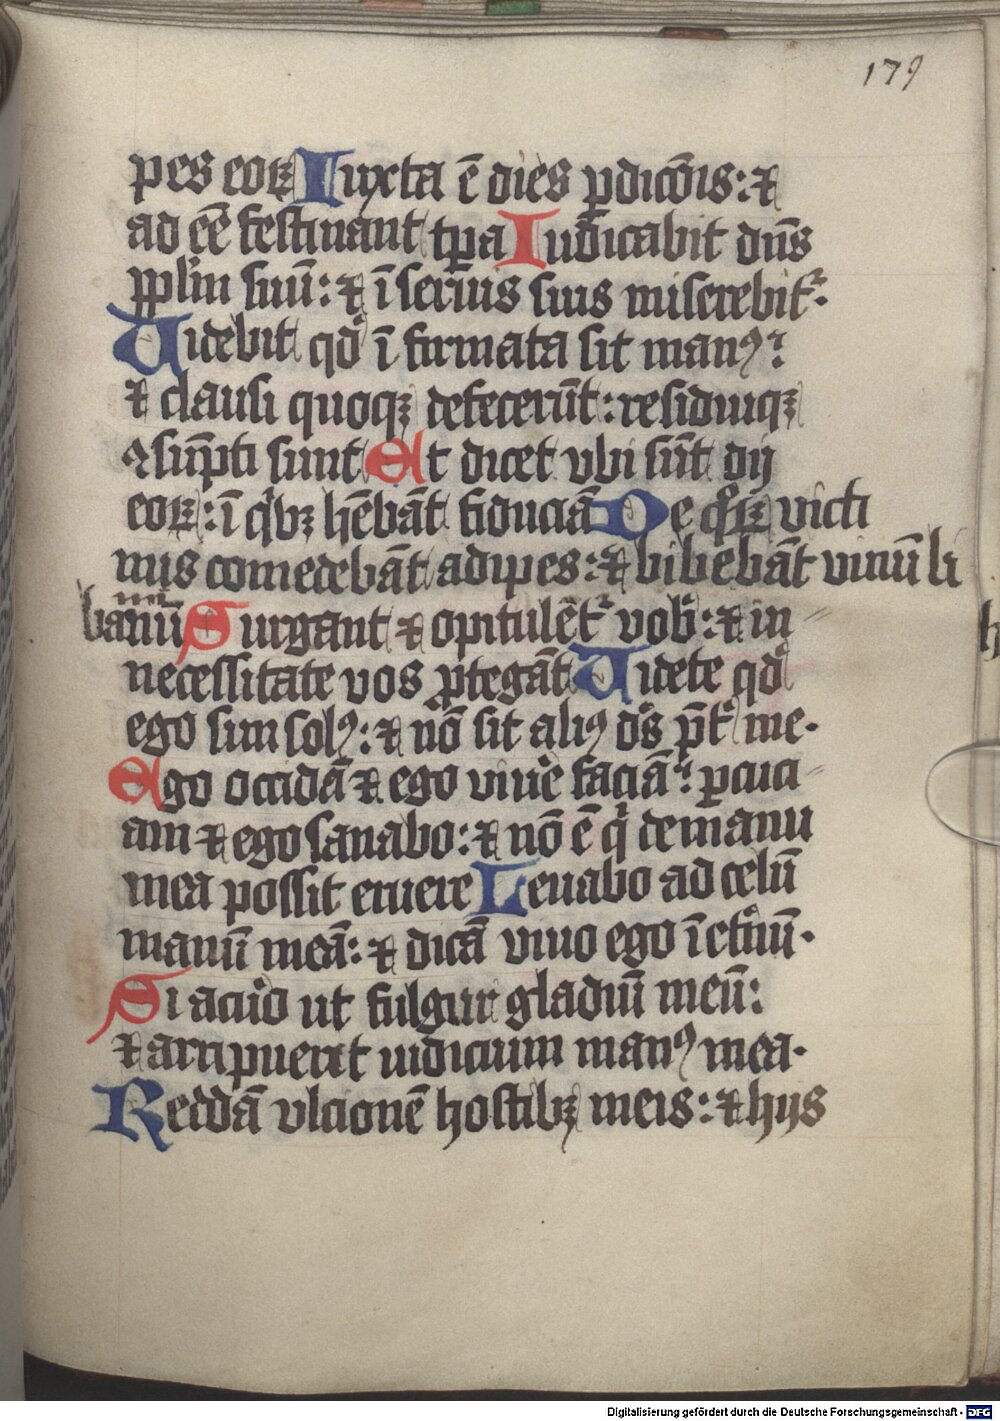 179
pes eoꝝ Iuxta ē dies ꝑdicōis: ⁊
ad eē festinant tꝑa Iudicabit dn̄s
ppl̄m suū: ⁊ ī seruis suis miserebit᷑.
Uidebit qd̓ īfirmata sit manꝰ:
⁊ clausi quoqꝫ defecerūt: residuiqꝫ
ꝯsūpti sunt Et dicet vbi sūt dij
eoꝝ: ī qͥbꝫ hēbāt fiduciā De qͦꝝ victi
mis comedebāt adipes: ⁊ bibebāt vinū li
banīnū Surgant ⁊ opitulēt᷑ vob̄: ⁊ in
necessitate vos ꝓtegāt Uidete qd̓
ego sim solꝰ: ⁊ nō sit aliꝰ ds̓ p̄t̓ me.
Ego occidā ⁊ ego viue̓ faciā: ꝑcuci
am ⁊ ego sanabo: ⁊ nō ē qͥ de manu
mea possit eruere Leuabo ad celū
manū meā: ⁊ dicā viuo ego ī et̓nū.
Si acuo̓ ut fulgur gladiū meū:
⁊ arripuerit iudicium manꝰ mea.
Reddā vlcionē hostibꝫ meis: ⁊ hijs
Digitalisierung gefördert durch die Deutsche Forschungsgemeinschaft - DFG